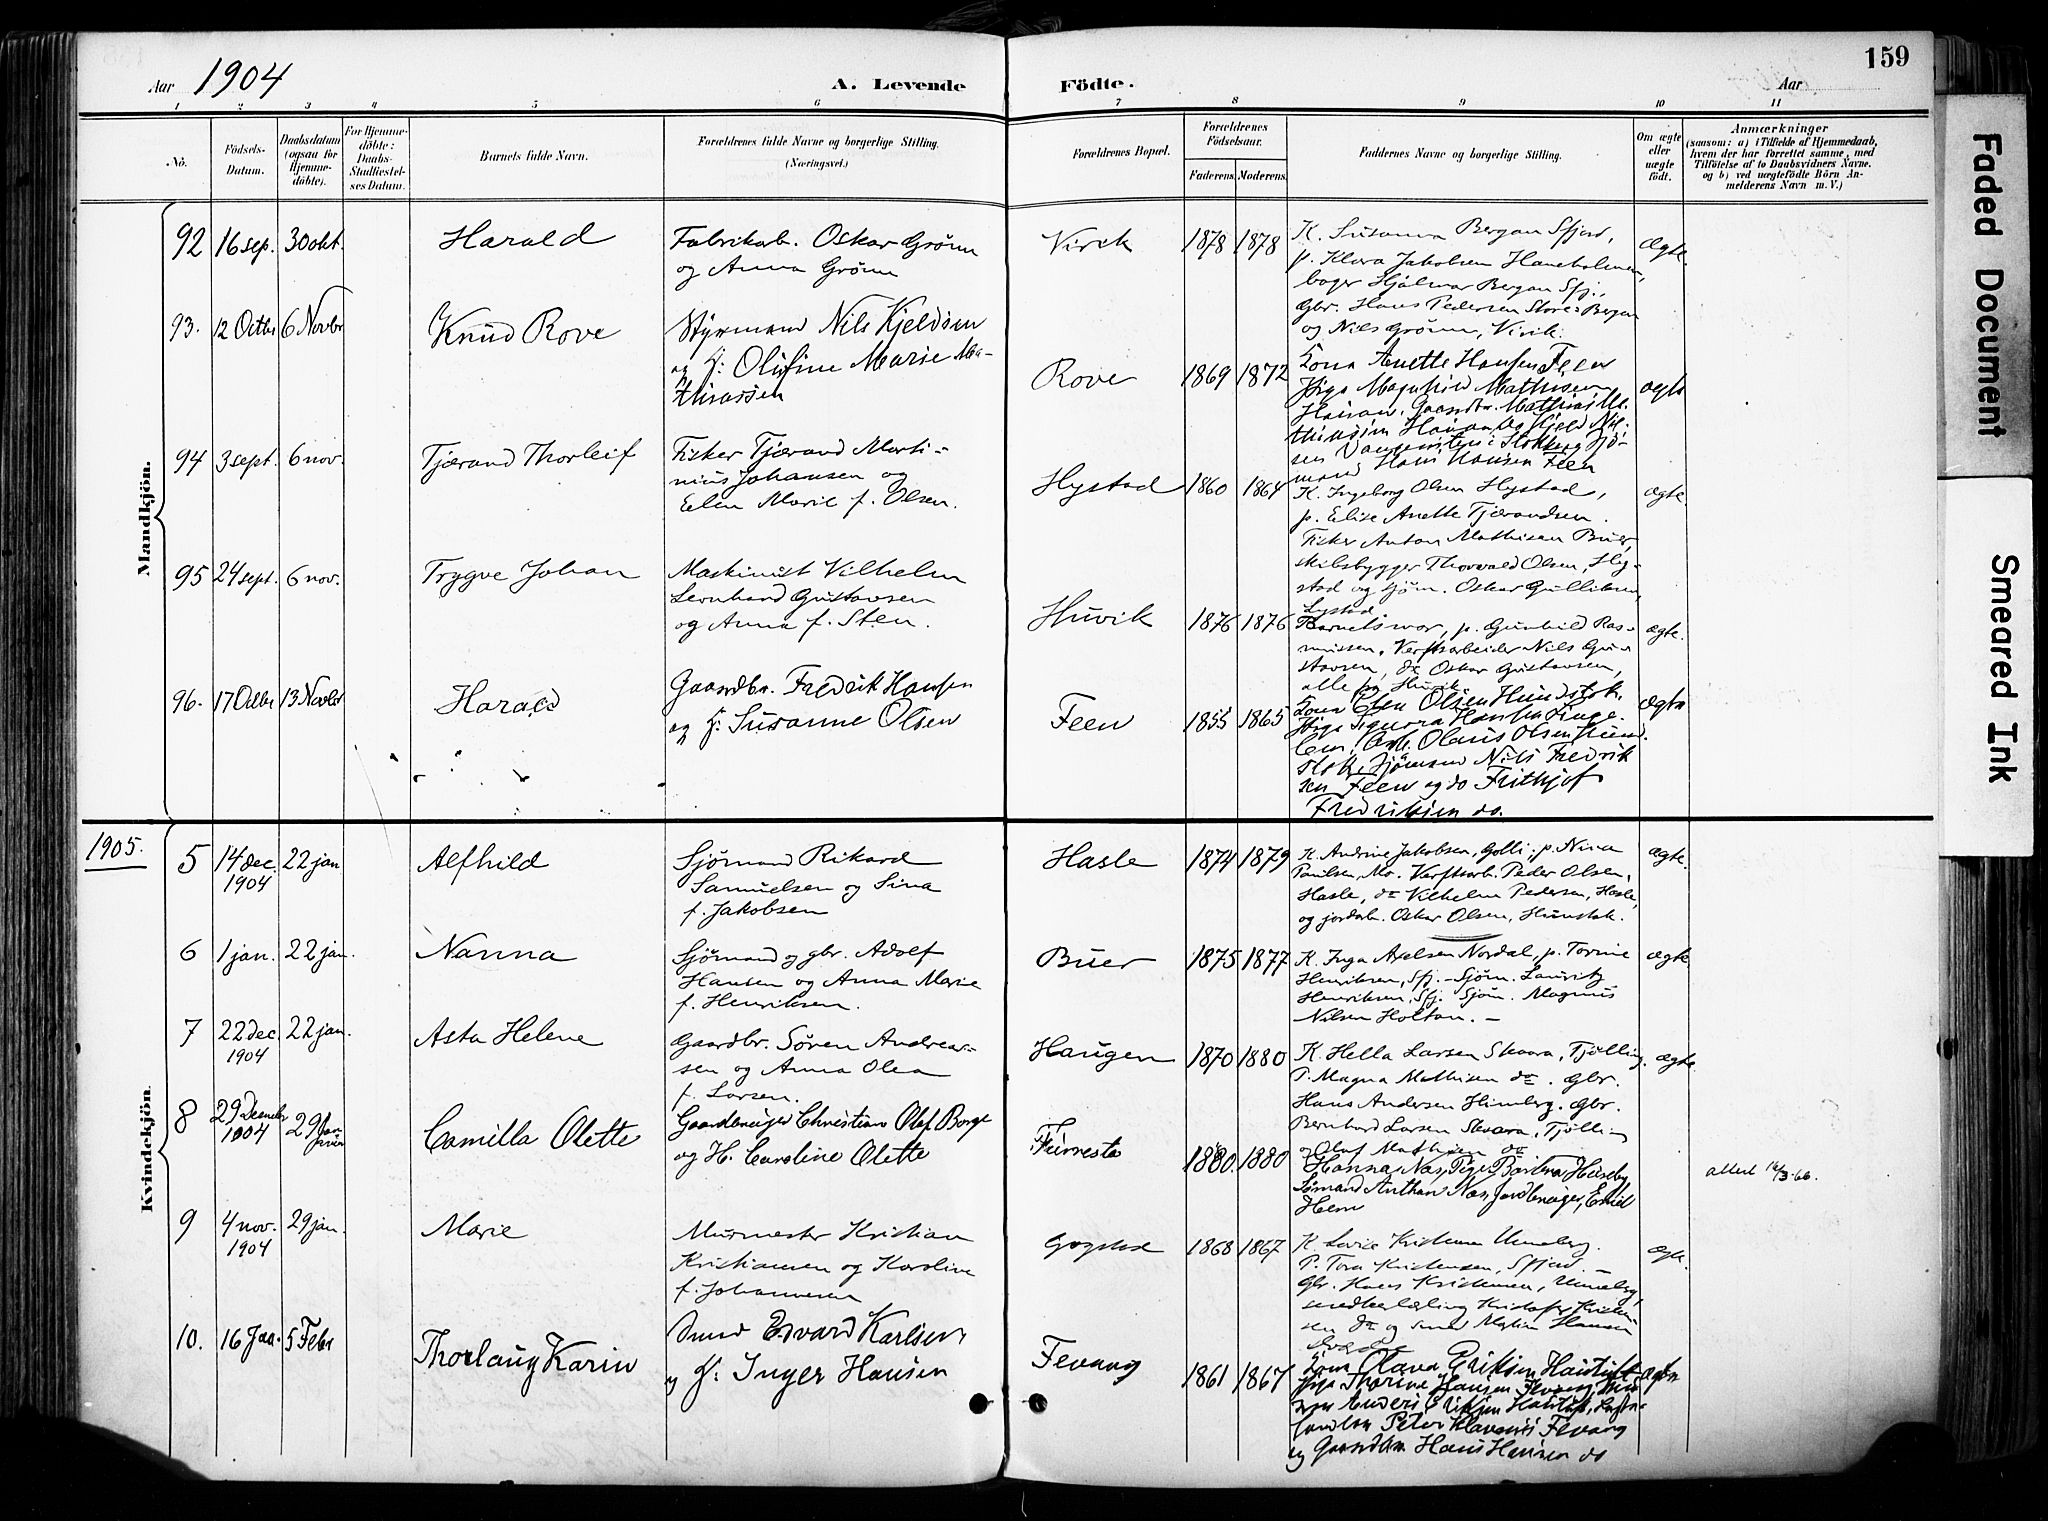 159
Aar 1904
A. Levende Födte.
Aar
1 2 3 4 5 6 7 8 9 10 11
No.
Födsels-Datum.
Daabsdatum (ogsaa for Hjemme-döbte).
For Hjemme-döbte: Daabs-Stadfæstel-ses Datum.
Barnets fulde Navn.
Forældrenes fulde Navne og borgerlige Stilling. (Næringsvei.)
Forældrenes Bopæl.
Forældrenes Födselsaar.
Faderens. Moderens.
Faddernes Navne og borgerlige Stilling.
Om ægte eller uægte födt.
Anmærkninger
(saasom: a) i Tilfælde af Hjemmedaab,
hvem der har forrettet samme, med
Tilföielse af to Daabsvidners Navne.
og b) ved uægtefödte Börn An-
melderens Navn m. V.)
Mandkjön.
92 16 sep. 30 okt. Harald
Fabrikarb. Oskar Grønn
og Anna Grønn
Virik 1878 1878
K. Susanna Bergan Sfjord,
p. Klara Jakobsen Haneholmen,
bager Hjalmar Bergan Sfj.,
Gbr. Hans Pedersen Store-Bergan
og Nils Grønn, Virik.
Ægte.
93. 12 Octbr 6 Novbr Knud Rove
Styrmand Nils Kjeldsen
og H: Olufine Marie Ma-
thiassen
Rove 1869 1872
Kona Anette Hansen Feen
Piga Magnhild Mathisen
ægte
94 3 sept. 6 nov. Tjærand Thorleif
Fisker Tjærand Marti-
nius Johansen og
Elen Marie f. Olsen.
Hystad 1860 1864
Hans Hansen Feen
K. Ingeborg Olsen Hystad,
p. Elise Anette Tjærandsen.
Fisker Anton Mathisen Buer,
skibsbygger Thorvald Olsen, Hy-
stad og sjøm. Oskar Gulliksen,
Hystad.
ægte.
95 24 sept. 6 nov. Trygve Johan
Maskinist Vilhelm
Leonhard Gustavsen
og Anna f. Sten.
Huvik 1876 1876
Barnets mor, p. Gunhild Ras-
mussen, Verftsarbeider Nils Gu-
stavsen, do Oskar Gustavsen,
alle fra Huvik.
ægte.
96. 17 Octbr 13 Novbr Harald
Gaardbr. Fredrik Hansen
og H: Susanne Olsen
Feen 1855 1865
Kona Elen Olsen Hundstok.
Olaus Olsen Hund-
stok, Sjømand Nils Fredrik
sen Feen og do Frithjof
Fredriksen do.
Ægte
1905.
Kvindekjön.
5 14 dec. 1904 22 jan Alfhild
Sjømand Rikard
Samuelsen og Sina
f. Jakobsen
Hasle 1874 1879
K. Andrine Jakobsen, Golli. p. Nina
Paulsen, Mo. Verftsarb. Peder Olsen,
Hasle, do Vilhelm Pedersen, Hasle,
og jordarb. Oskar Olsen, Hundstok.
ægte.
6 1 jan. 22 jan. Nanna
Sjømand og gbr. Adolf
Hansen og Anna Marie
f. Henriksen.
Buer 1875 1877
K. Inga Axelsen Nordal, p. Torine
Henriksen, Sfj. - Sjøm. Lauritz
Henriksen, Sfj. Sjøm. Magnus
Nilsen Holtan. -
ægte
7 22 dec. 1904 22 jan. Asta Helene
Gaardbr. Søren Andrea-
sen og Anna Olea
f. Larsen.
Haugen 1870 1880
K. Hella Larsen Skaara, Tjølling.
P. Magna Mathisen do. Gbr.
Hans Andersen Himberg. Gbr.
Bernhard Larsen Skaara, Tjølling
og Olaf Mathisen do
ægte.
8 29 December 1904 29 Januar Camilla Olette
Gaardbruger Christian Olaf Borge
og H. Caroline Olette
Furresta 1880. 1880
Hanna Næs, Pige Barbra Huseby
Sømand Anthon Næs, Jordbruger, Emil
Hem
attest 16/3-66.
9 4 nov. 1904 29 jan. Marie
Murmester Kristian
Kristiansen og Karoline
f. Johannesen
Gogstad 1868 1867
K. Lovise Kristensen Unneberg.
P. Tora Kristensen, Sfjord. -
Gbr. Hans Kristensen, Unneberg,
smedkerlærling Kristofer Kristen-
sen do og smed Martin Hansen
ægte.
10. 16 Jan. 5 Febr Thorlaug Karin
Smed Edvard Karlsen
og H: Inger Hansen
Fevang 1861 1867
Kona Olava Eriksen Haistad
Piga Thorine Hansen Fevang,
Anders Eriksen
Peter Klavenes Fevang
og Gaardbr Hans Hansen do
ægte
Faded Document
Smeared Ink